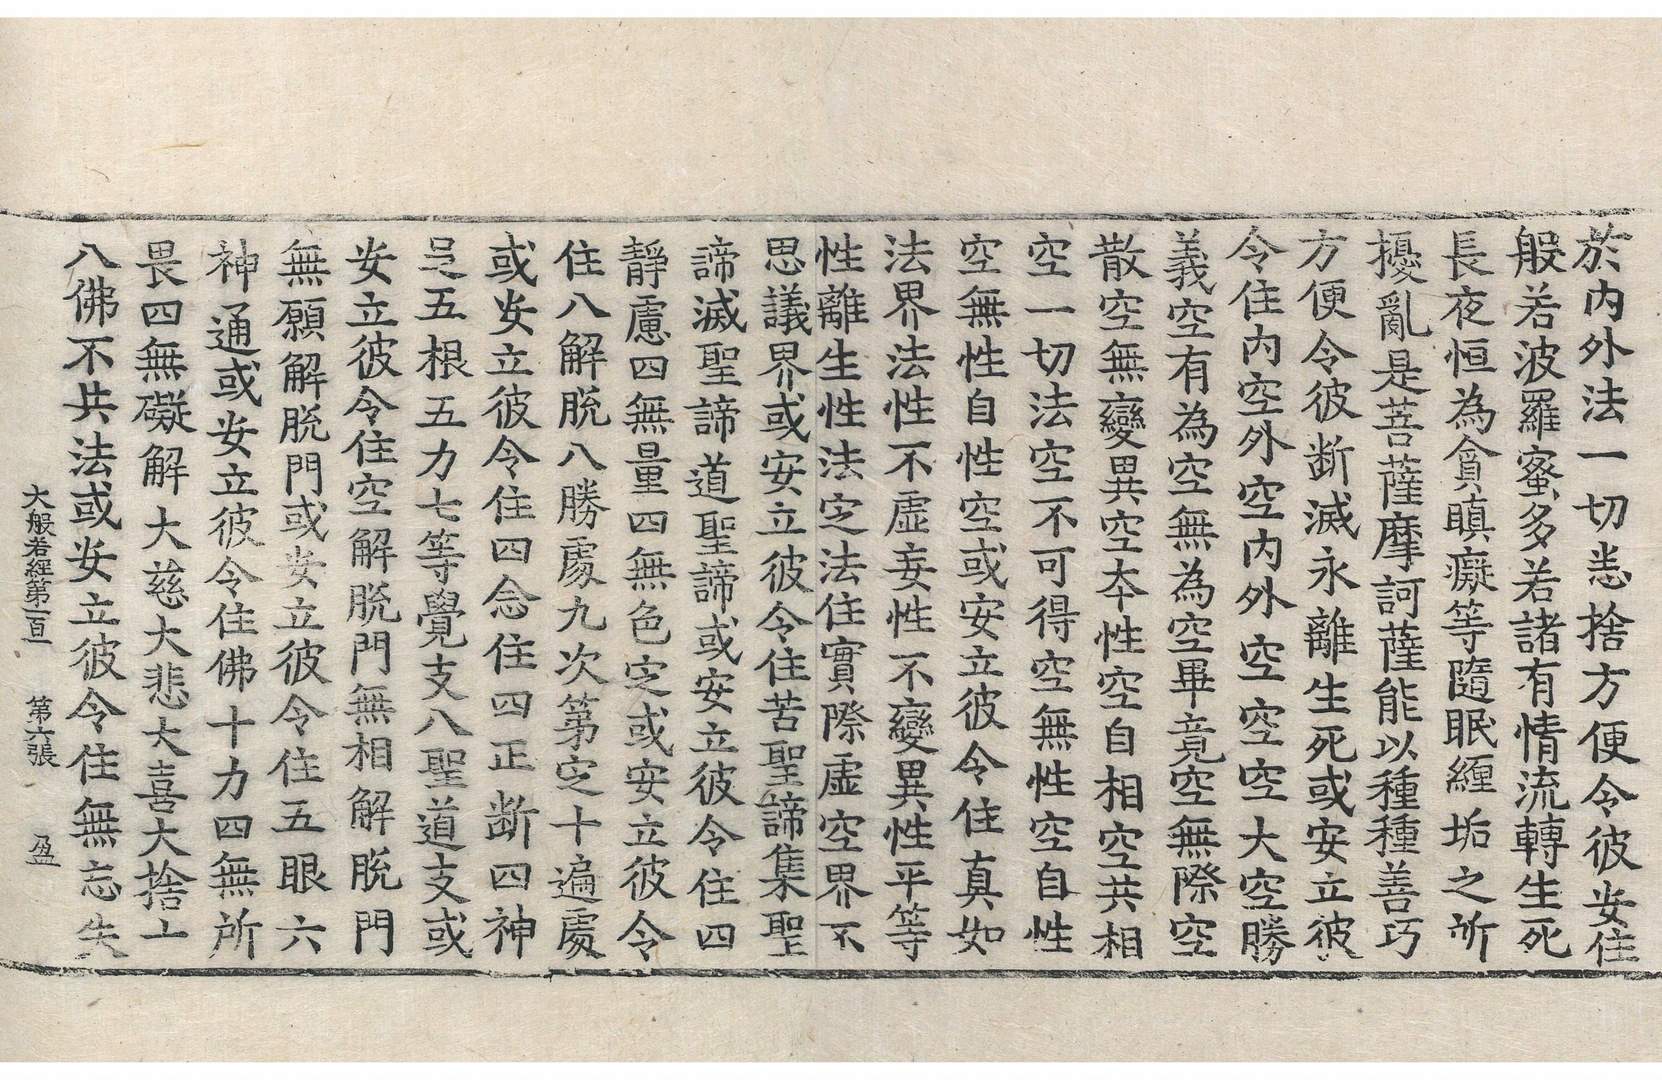 於內外法一切恙捨方便令彼安住
般若波羅蜜多若諸有情流轉生死
長夜恒為貪瞋癡等隨眠纏垢之所
擾亂是菩薩摩訶薩能以種種善巧
方便令彼斷滅永離生死或安立彼
令住內空外空內外空空空大空勝
義空有為空無為空畢竟空無際空
散空無變異空本性空自相空共相
空一切法空不可得空無性空自性
空無性自性空或安立彼令住真如
法界法性不虛妄性不變異性平等
性離生性法定法住實際虛空界不
思議界或安立彼令住苦聖諦集聖
諦滅聖諦道聖諦或安立彼令住四
靜慮四無量四無色定或安立彼令
住八解脫八勝處九次第定十遍處
或安立彼令住四念住四正斷四神
足五根五力七等覺支八聖道支或
安立彼令住空解脫門無相解脫門
無願解脫門或安立彼令住五眼六
神通或安立彼令住佛十力四無所
畏四無礙解大慈大悲大喜大捨十
八佛不共法或安立彼令住無忘失
大般若經第一百 第六張 盈